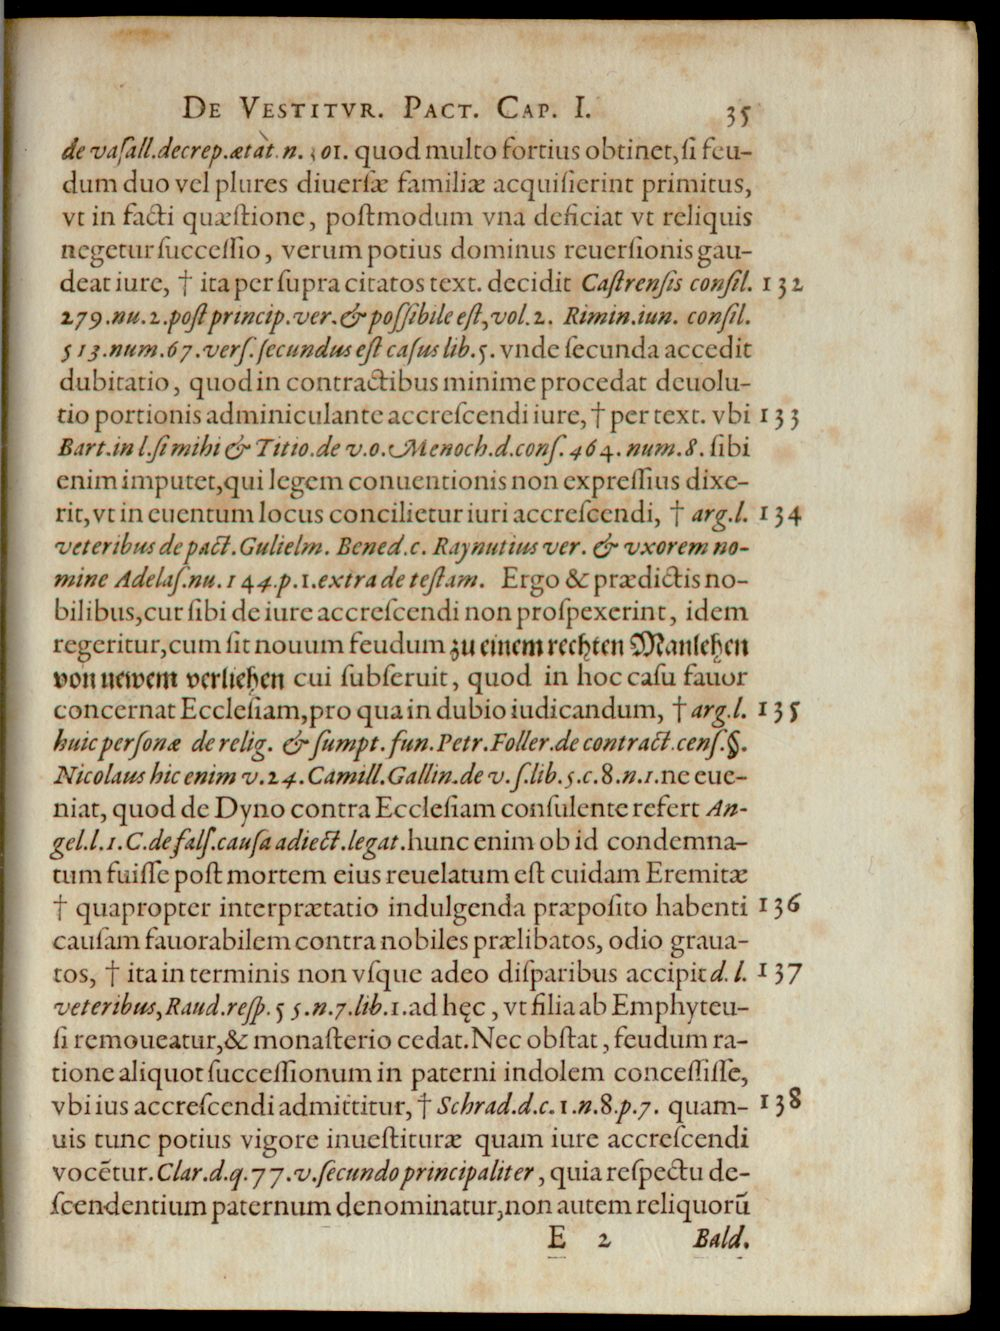 De Vestitvr. Pact. Cap. I. 35
de vaſall. decrep. ætat. n. 301. quod multo fortius obtinet, ſi feu-
dum duo vel plures diuerſæ familiæ acquiſierint primitus,
vt in facti quæſtione, poſtmodum vna deficiat vt reliquis
negetur ſucceſſio, verum potius dominus reuerſionis gau-
deat iure, † ita per ſupra citatos text. decidit Caſtrenſis conſil. 132
279. nu. 2. poſt princip. ver. & poſſibile eſt, vol. 2. Rimin. iun. conſil.
513. num. 67. verſ. ſecundus eſt caſus lib. 5. vnde ſecunda accedit
dubitatio, quod in contractibus minime procedat deuolu-
tio portionis adminiculante accreſcendi iure, † per text. vbi 133
Bart. in l. ſi mihi & Titio. de v. o. Menoch. d. conſ. 464. num. 8. ſibi
enim imputet, qui legem conuentionis non expreſſius dixe-
rit, vt in euentum locus concilietur iuri accreſcendi, † arg. l. 134
veteribus de pact. Gulielm. Bened. c. Raynutius ver. & vxorem no-
mine Adelaſ. nu. 144. p. 1. extra de teſtam. Ergo & prædictis no-
bilibus, cur ſibi de iure accreſcendi non proſpexerint, idem
regeritur, cum ſit nouum feudum zu einem rechten Manlehen
von newem verliehen cui ſubſeruit, quod in hoc caſu fauor
concernat Eccleſiam, pro qua in dubio iudicandum, † arg. l. 135
huic perſonæ de relig. & ſumpt. fun. Petr. Foller. de contract. cenſ. §.
Nicolaus hic enim v. 24. Camill. Gallin. de v. ſ. lib. 5. c. 8. n. 1. ne eue-
niat, quod de Dyno contra Eccleſiam conſulente refert An-
gel. l. 1. C. de falſ. cauſa adiect. legat. hunc enim ob id condemna-
tum fuiſſe poſt mortem eius reuelatum eſt cuidam Eremitæ
† quapropter interprætatio indulgenda præpoſito habenti 136
cauſam fauorabilem contra nobiles prælibatos, odio graua-
tos, † ita in terminis non vſque adeo diſparibus accipit d. l. 137
veteribus, Raud. reſp. 55. n. 7. lib. 1. ad hęc, vt filia ab Emphyteu-
ſi remoueatur, & monaſterio cedat. Nec obſtat, feudum ra-
tione aliquot ſucceſſionum in paterni indolem conceſſiſſe,
vbi ius accreſcendi admittitur, † Schrad. d. c. 1. n. 8. p. 7. quam- 138
uis tunc potius vigore inueſtituræ quam iure accreſcendi
vocētur. Clar. d. q. 77. v. ſecundo principaliter, quia reſpectu de-
ſcendentium paternum denominatur, non autem reliquorū
E 2 Bald.